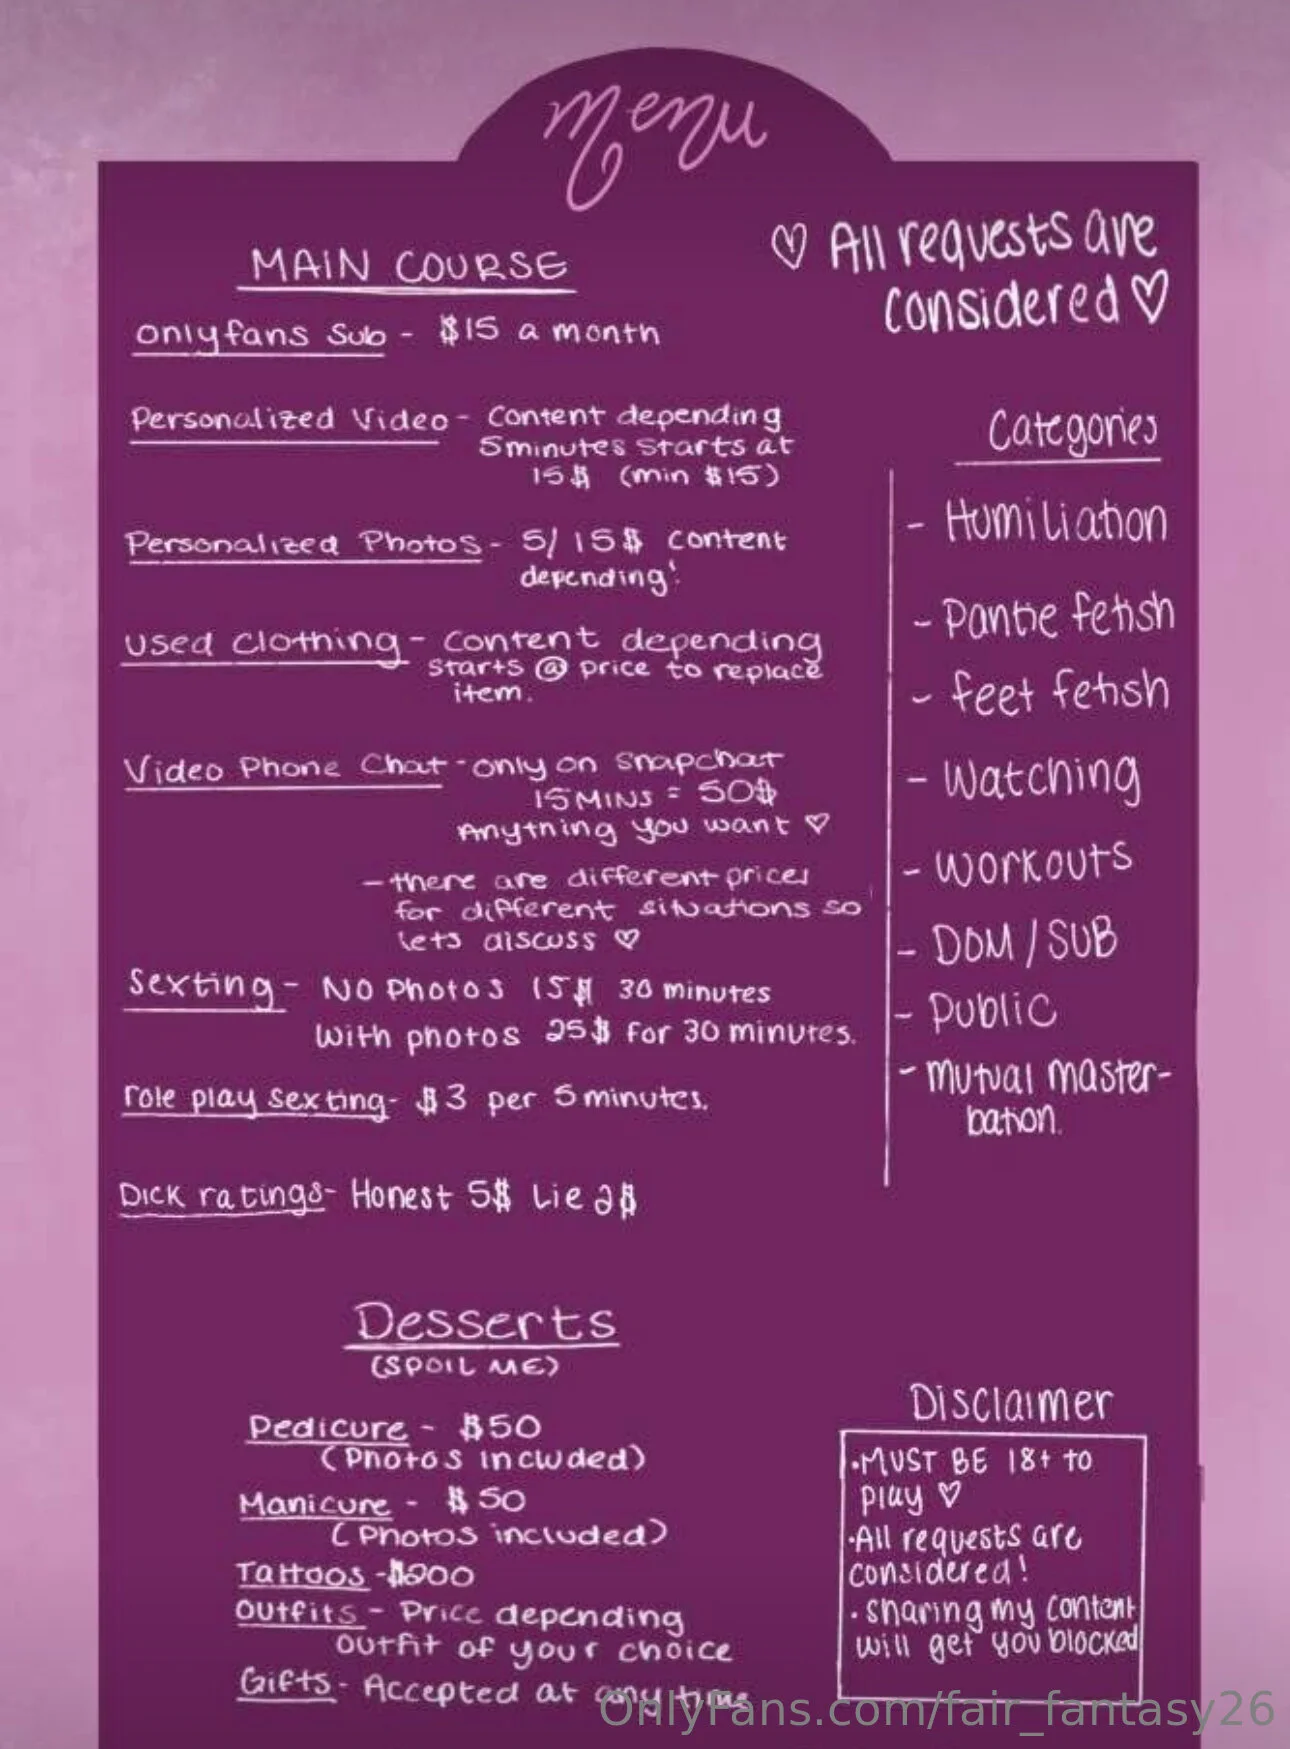 menu
♡ All requests are
considered ♡
MAIN COURSE
onlyfans Sub - $15 a month
Personalized Video - Content depending
5minutes starts at
15$ (min $15)
Personalized Photos - 5/15$ content
depending!
used clothing - content depending
starts @ price to replace
item.
Video Phone Chat - only on snapchat
15 MINS = 50$
Anything you want ♡
- there are different prices
for different situations so
lets discuss ♡
Sexting - No Photos 15$ 30 minutes
With photos 25$ for 30 minutes.
role play sexting - $3 per 5 minutes.
Dick ratings - Honest 5$ Lie 2$
Categories
- Humiliation
- Pantie fetish
- feet fetish
- Watching
- workouts
- DOM / SUB
- Public
- mutual master-
bation.
Desserts
(SPOIL ME)
Pedicure - $50
(Photos included)
Manicure - $50
(Photos included)
Tattoos - $200
Outfits - Price depending
outfit of your choice
Gifts - Accepted at any time
Disclaimer
• MUST BE 18+ to
play ♡
• All requests are
considered!
• sharing my content
will get you blocked
OnlyFans.com/fair_fantasy26